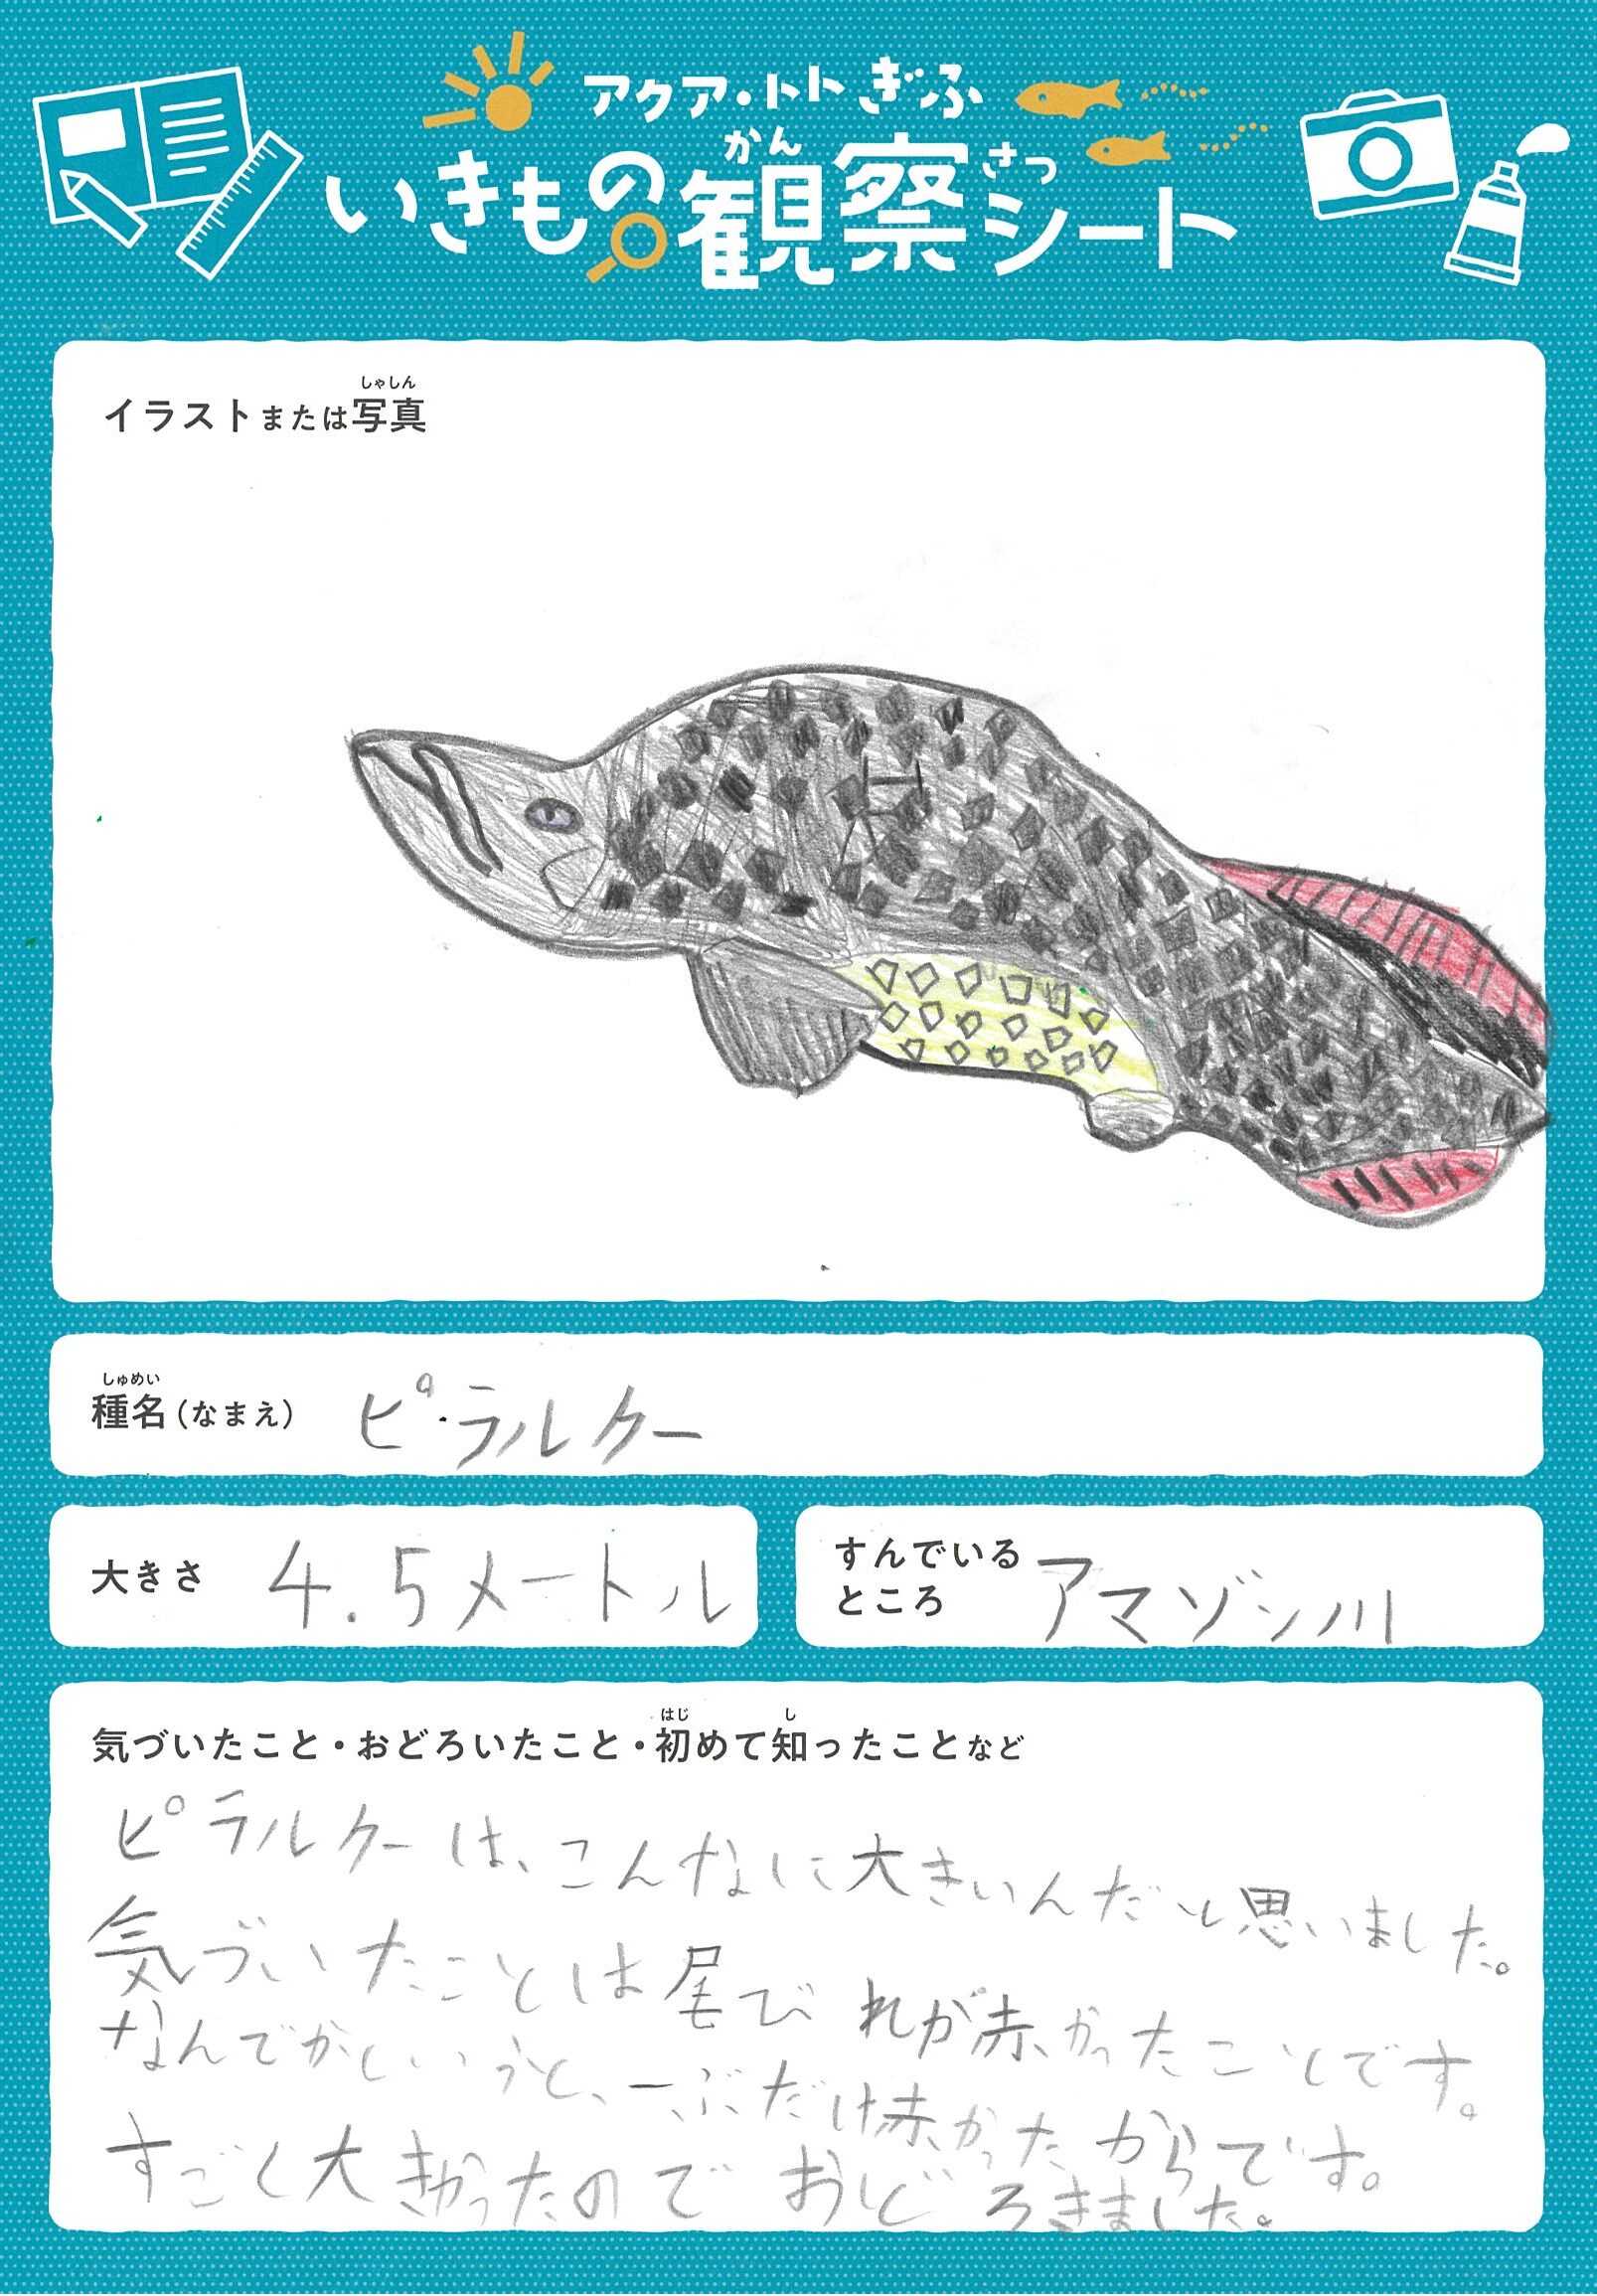 アクア・トト ぎふ
いきもの観察シート
かん
さつ
イラストまたは写真
しゃしん
種名(なまえ) ピラルクー
しゅめい
大きさ 4.5メートル
すんでいる
ところ アマゾン川
気づいたこと・おどろいたこと・初めて知ったことなど
はじ
し
ピラルクーは、こんなに大きいんだと思いました。
気づいたことは尾びれが赤かったことです。
なんでかというと、一ぶだけ赤かったからです。
すごく大きかったのでおどろきました。